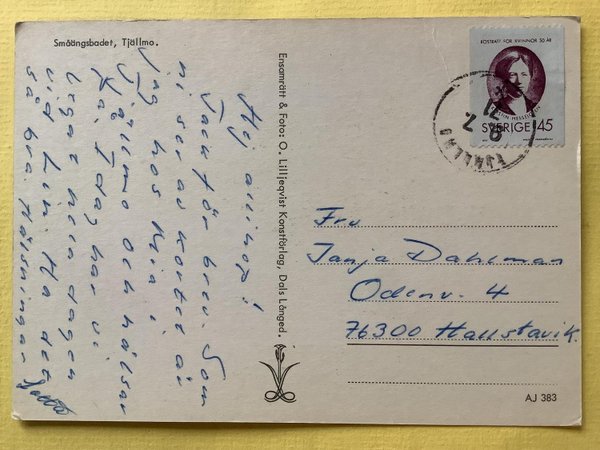 Småängsbadet, Tjällmo.
Hej allihop!
Tack för brev. Som
ni ser av kortet är
jag hos Kia i
Tjällmo och hälsar
på. Idag har vi
legat hela dagen
vid Ha det
så bra Hälsningar
Ensamrätt & Foto: O. Lilljeqvist Konstförlag, Dals Långed
RÖSTRÄTT FÖR KVINNOR 50 ÅR
SVERIGE 45
TJÄLLMO
8 7
71
Fru
Tanja Dahlman
Odenv. 4
76300 Hallstavik.
AJ 383